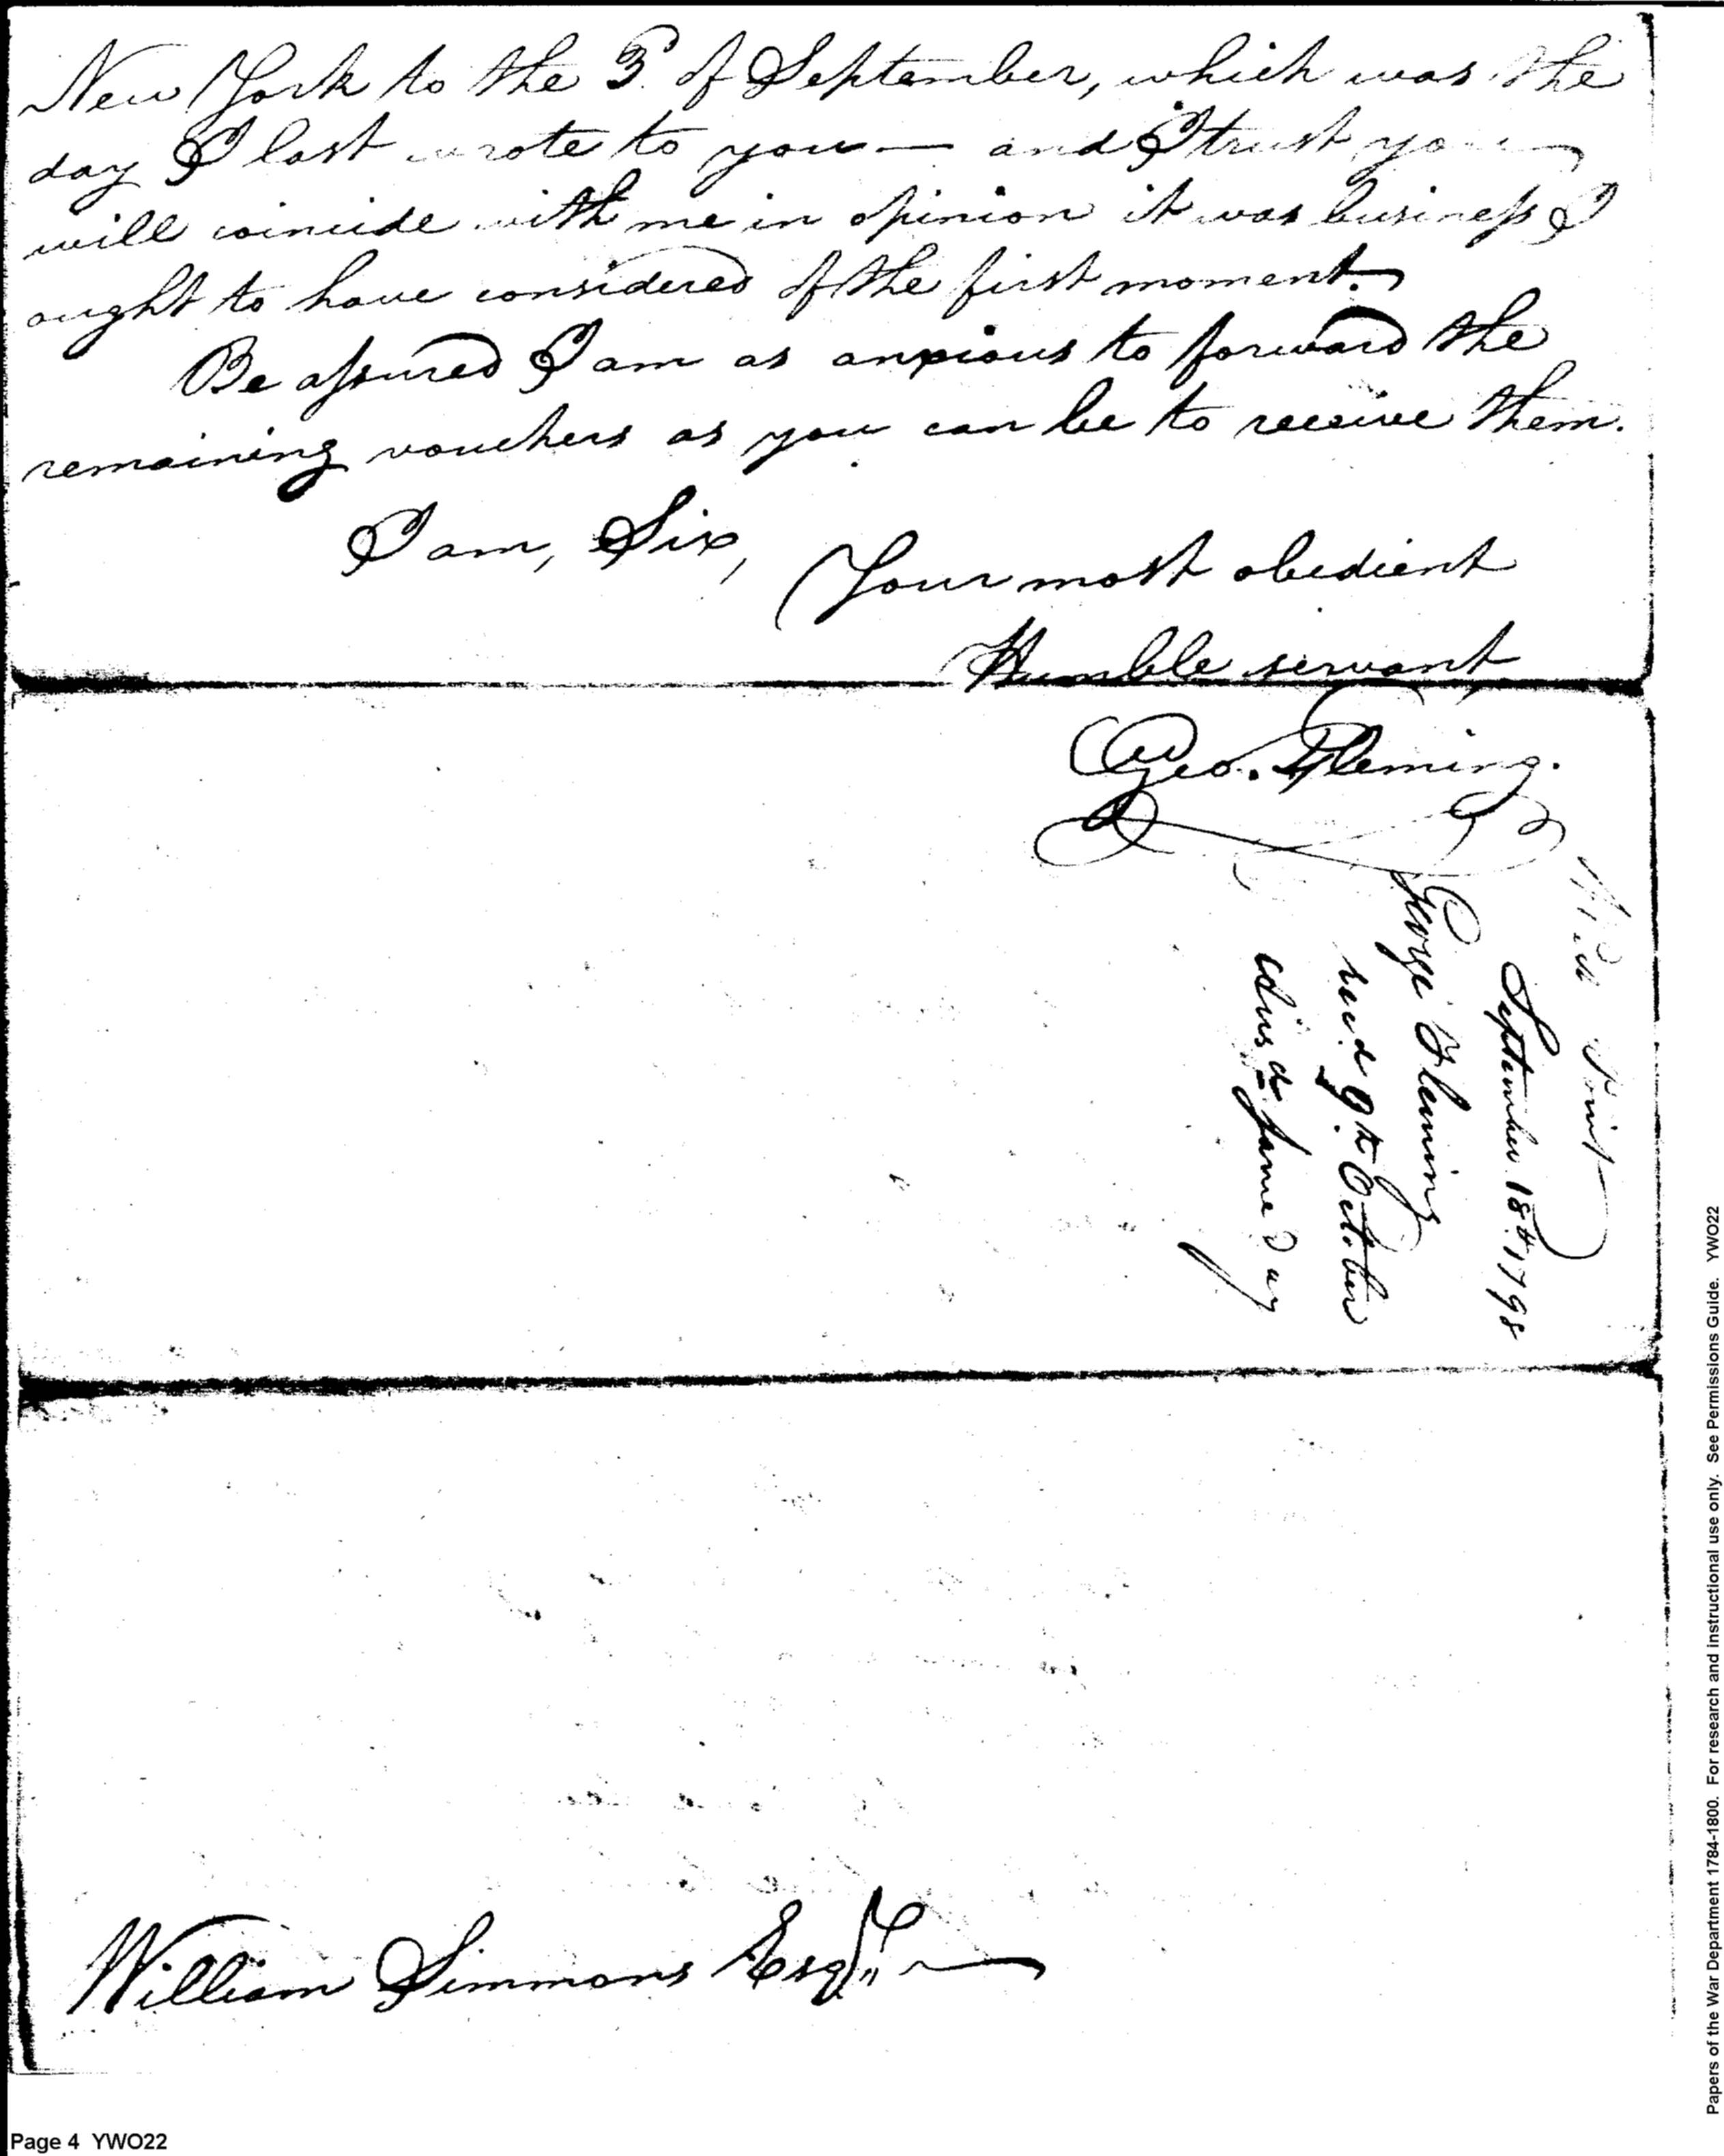 New York to the 3d. of September, which was the
day I last wrote to you — and I trust you
will coincide with me in opinion it was business I
ought to have considered of the first moment.
Be assured I am as anxious to forward the
remaining vouchers as you can be to receive them.
I am, Sir,
Your most obedient
Humble servant
Geo. Fleming.
West Point
September 18th 1798
George Fleming
recd. 9th October
same Day
William Simmons Esqr.
Page 4 YWO22
Papers of the War Department 1784-1800. For research and instructional use only. See Permissions Guide. YWO22